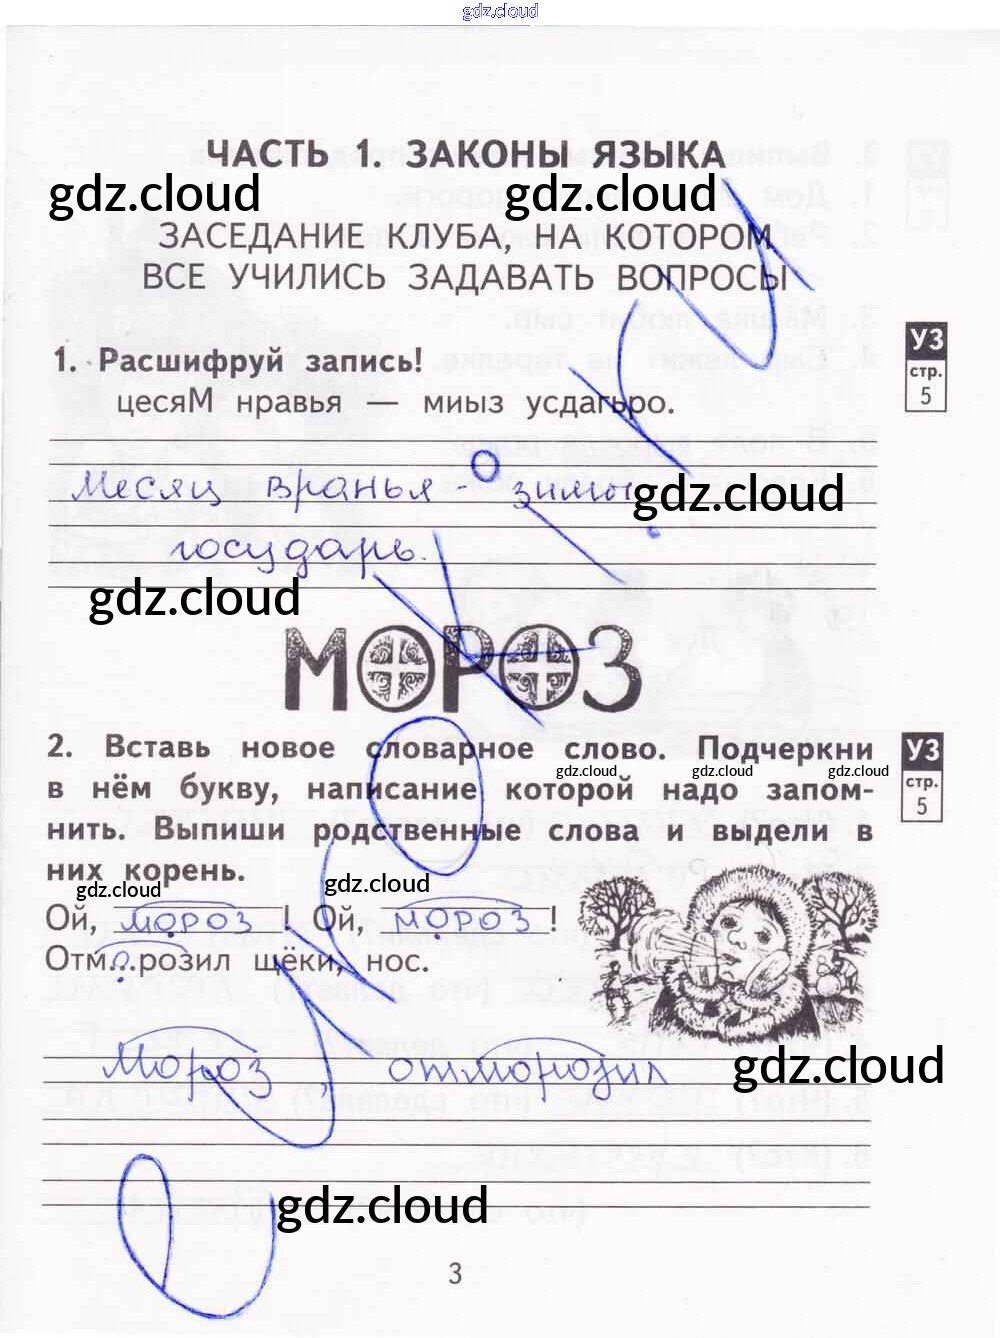 gdz.cloud
ЧАСТЬ 1. ЗАКОНЫ ЯЗЫКА
gdz.cloud gdz.cloud
ЗАСЕДАНИЕ КЛУБА, НА КОТОРОМ
ВСЕ УЧИЛИСЬ ЗАДАВАТЬ ВОПРОСЫ
1. Расшифруй запись!
цесяМ нравья — миыз усдагьро.
УЗ
стр.
5
Месяц вранья - зимы
gdz.cloud
государь.
gdz.cloud
МОРОЗ
2. Вставь новое словарное слово. Подчеркни
gdz.cloud gdz.cloud gdz.cloud
в нём букву, написание которой надо запом-
нить. Выпиши родственные слова и выдели в
них корень.
УЗ
стр.
5
gdz.cloud gdz.cloud
Ой, мороз ! Ой, мороз !
Отм..о..розил щёки, нос.
мороз отморозил
gdz.cloud
gdz.cloud
3